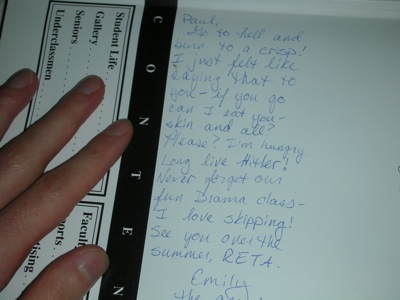 Paul,
Go to hell and
burn to a crisp!
I just felt like
saying that to
you - if you go
can I eat you -
skin and all?
Please? I'm hungry
Long live Hitler!
Never forget our
fun Drama class -
I love skipping!
See you over the
summer, RETA.
Emily
the
CONTEN
Student Life
Gallery
Seniors
Underclassmen
Facul
ports
ising